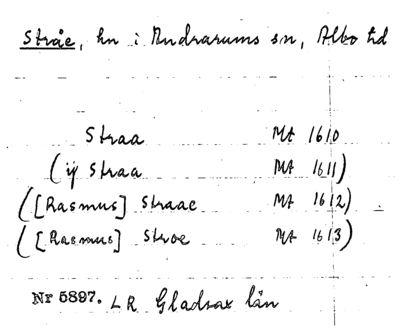 Stråe, hn i Andrarums sn, Albo hd
Straa Mt 1610
(ij Straa Mt 1611)
([Rasmus] Straae Mt 1612)
([Rasmus] Stroe Mt 1613)
Nr 5897. LR Gladsax län